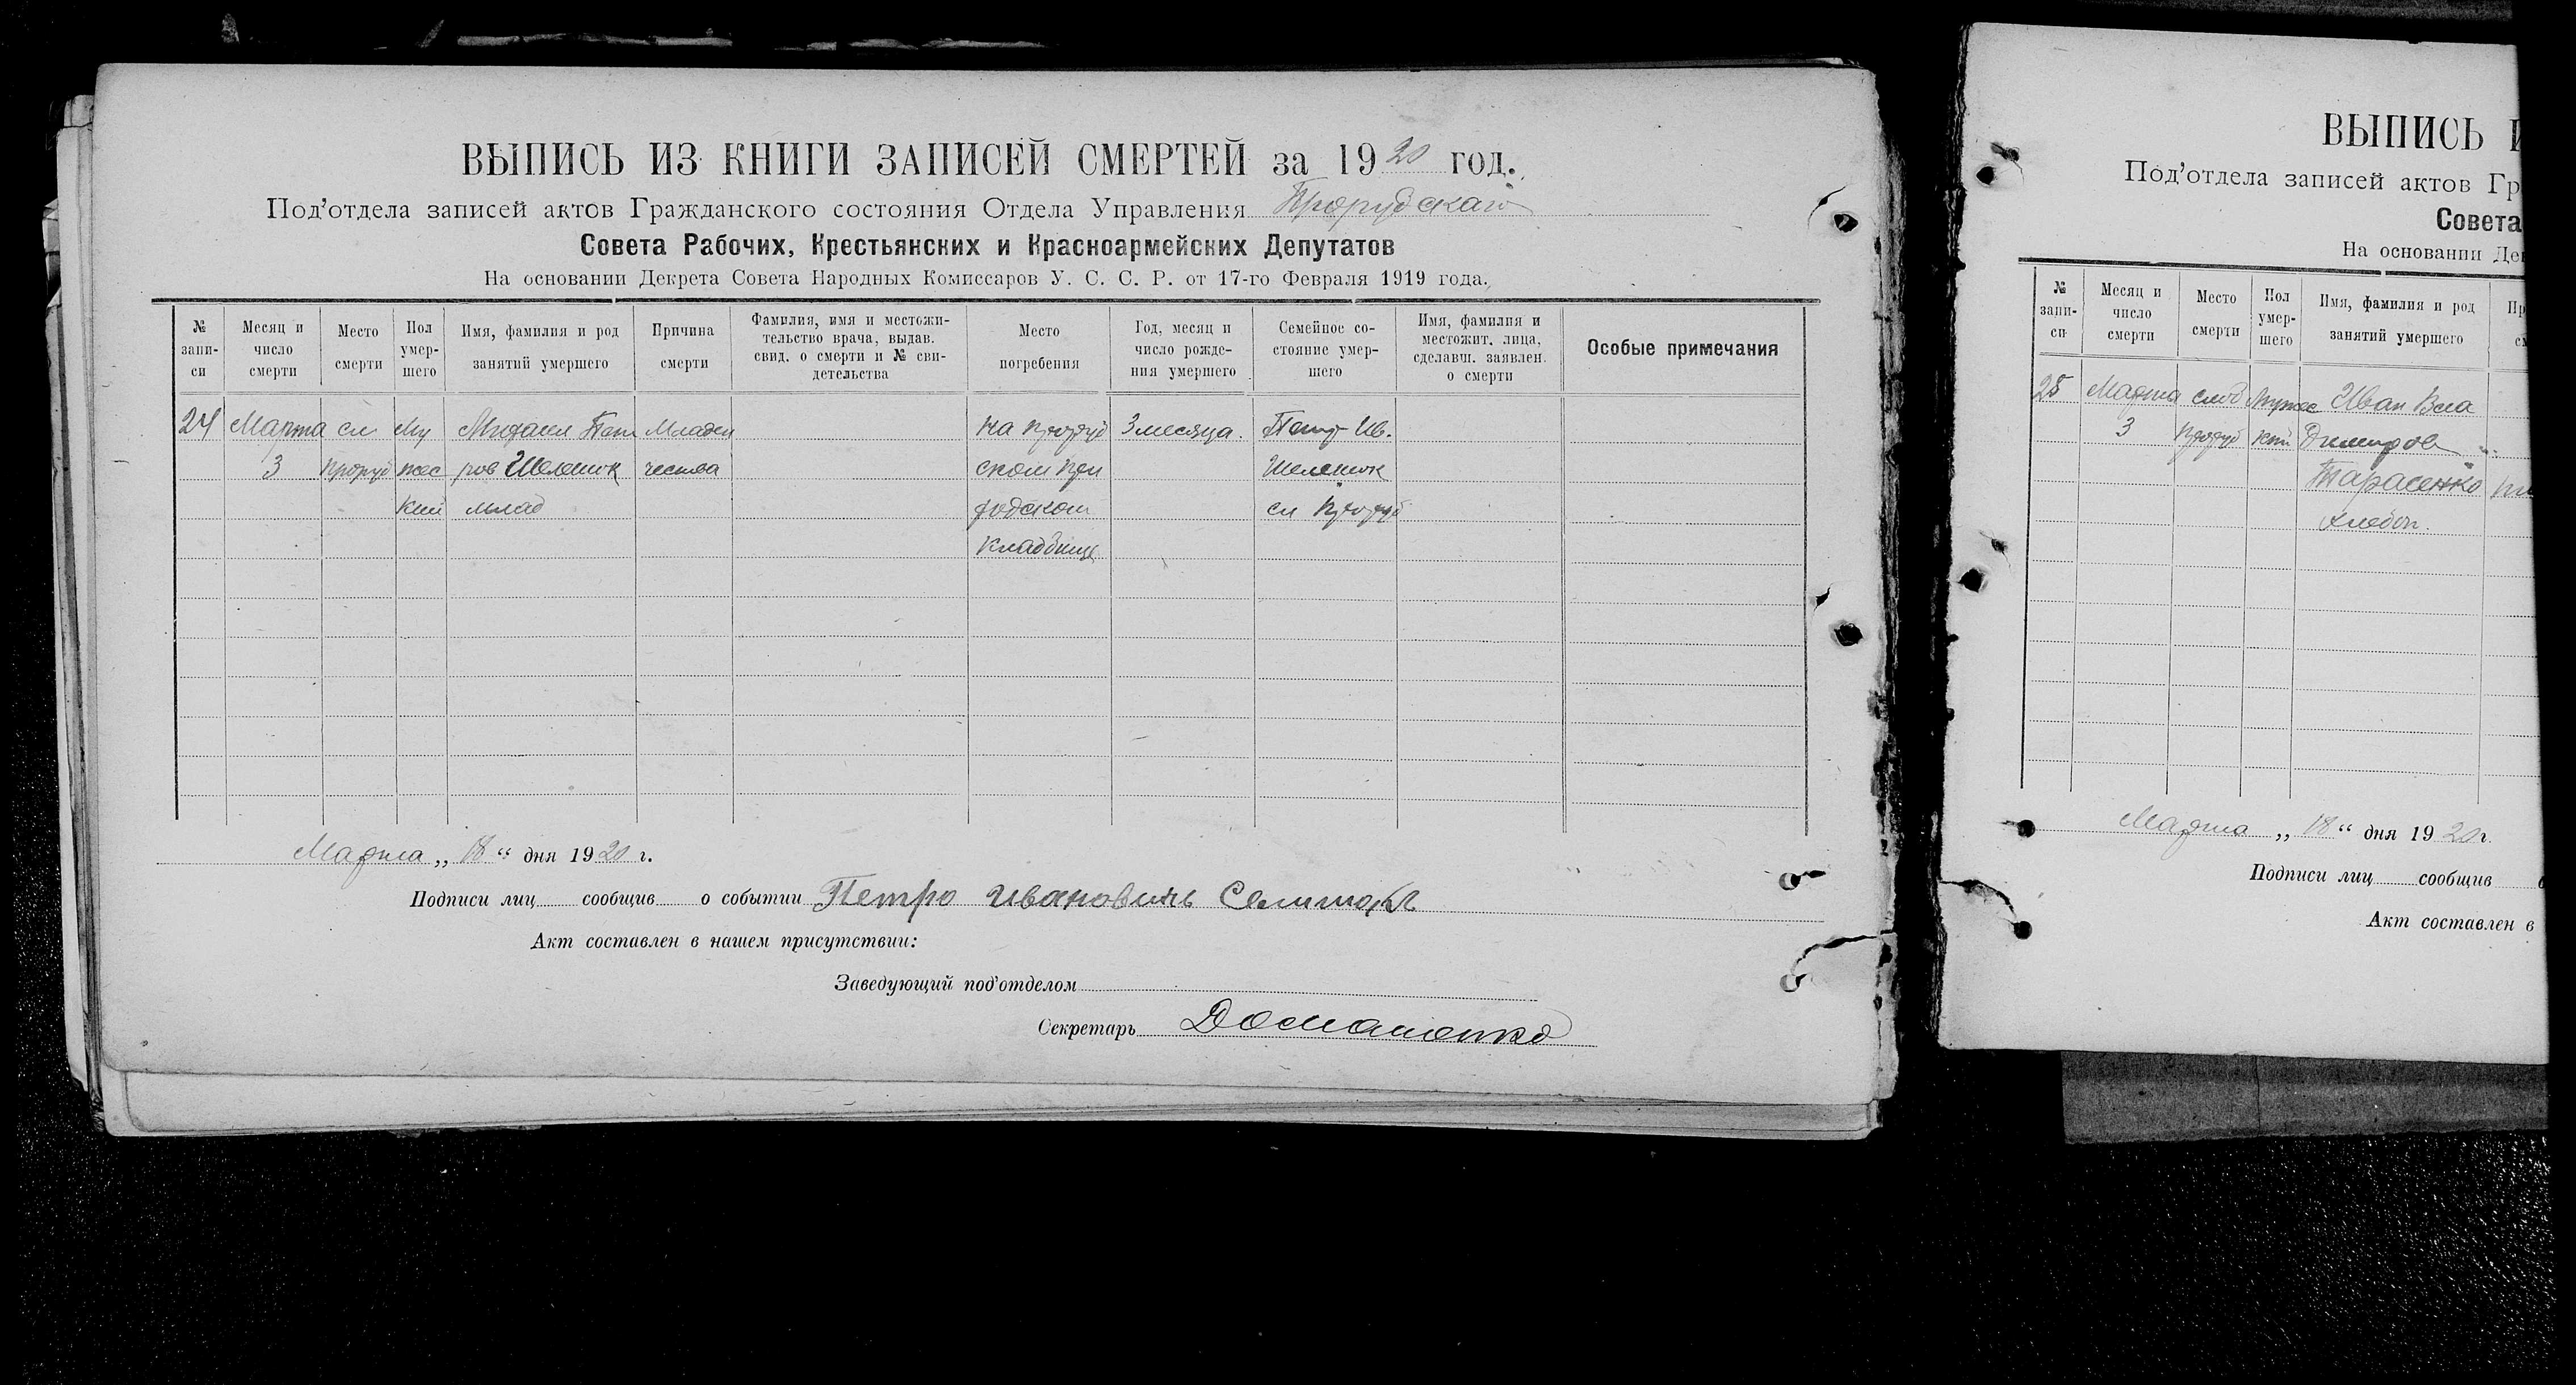 ВЫПИСЬ ИЗ КНИГИ ЗАПИСЕЙ СМЕРТЕЙ за 1920 год.
Под'отдела записей актов Гражданского состояния Отдела Управления Прорубскаго
Совета Рабочих, Крестьянских и Красноармейских Депутатов
На основании Декрета Совета Народных Комиссаров У. С. С. Р. от 17-го Февраля 1919 года.
№ запи- си
Месяц и число смерти
Место смерти
Пол умер- шего
Имя, фамилия и род занятий умершего
Причина смерти
Фамилия, имя и местожи- тельство врача, выдав. свид. о смерти и № сви- детельства
Место погребения
Год, месяц и число рожде- ния умершего
Семейное со- стояние умер- шего
Имя, фамилия и местожит. лица, сделавш. заявлен. о смерти
Особые примечания
24 Марта сл Му Михаил Пет Младен НаProруб 3 месяца. Петр Ив.
3 Проруб жес ров Шелешок чества ском при Шелешок
кий млад ходском сл Проруб
кладбище
Марта „18“ дня 1920 г.
Подписи лиц сообщив о событии Петро Ивановичь
Акт составлен в нашем присутствии:
Заведующий под'отделом
Секретарь Домашенко
ВЫПИСЬ И
Под'отдела записей актов Гр
Совета
На основании Де
№ запи- си
Месяц и число смерти
Место смерти
Пол умер- шего
Имя, фамилия и род занятий умершего
25 Марта слоб Мужес Иван Вла
3 Проруб кий димиров
Тарасенко
хлебоп.
Марта „18“ дня 1920 г.
Подписи лиц сообщив
Акт составлен в